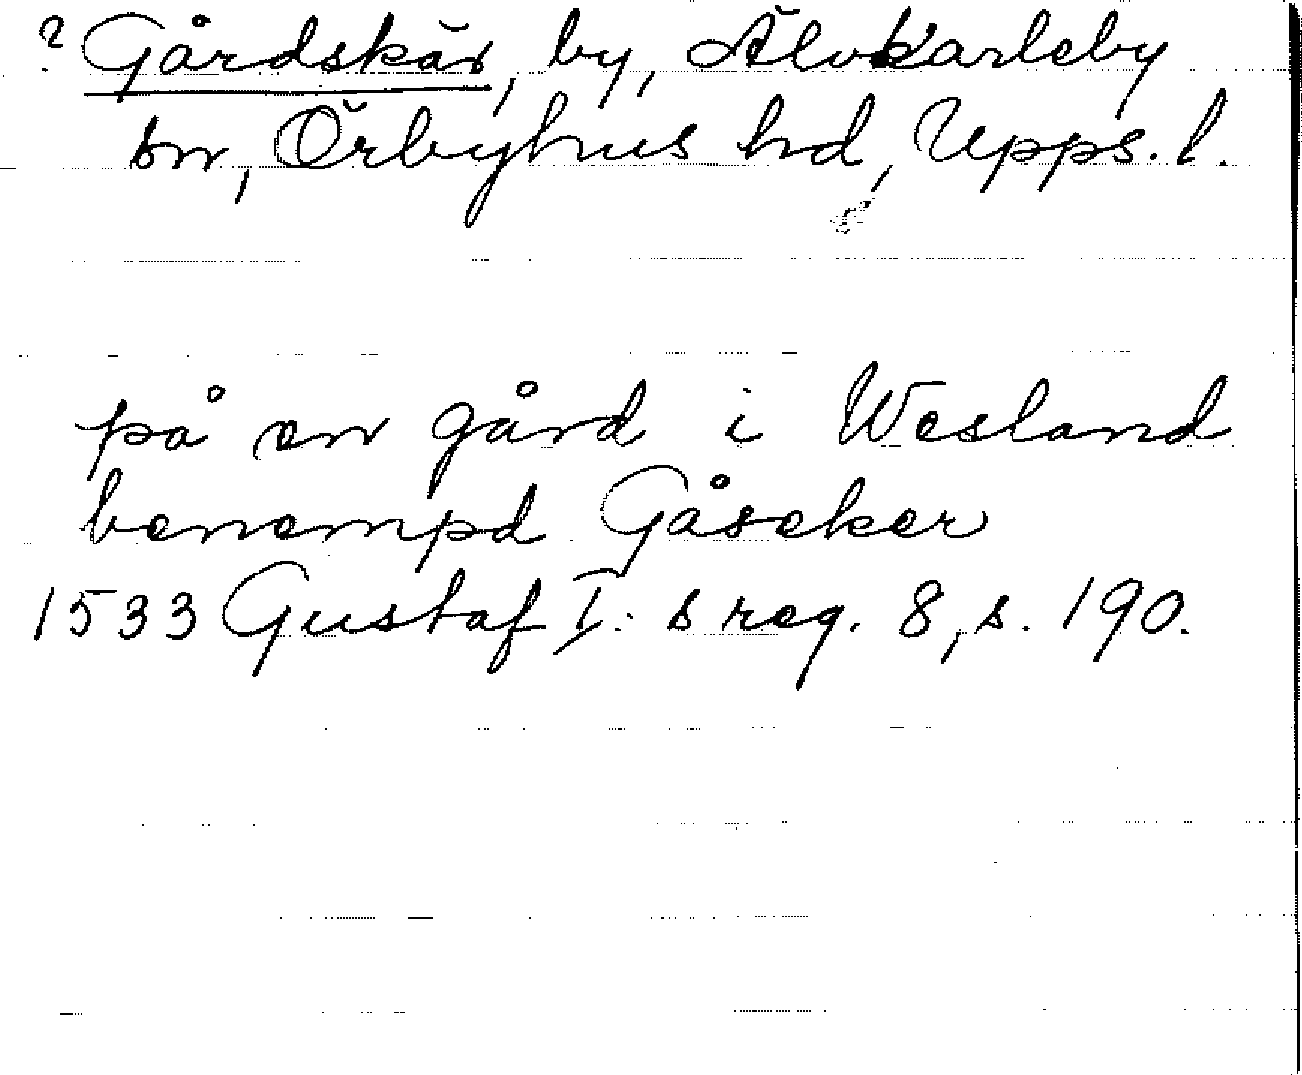 ? Gårdskär, by, Älvkarleby
sn, Örbyhus hd, Upps. l.
på en gård i Wesland
benempd Gåseker
1533 Gustaf I: s reg. 8, s. 190.